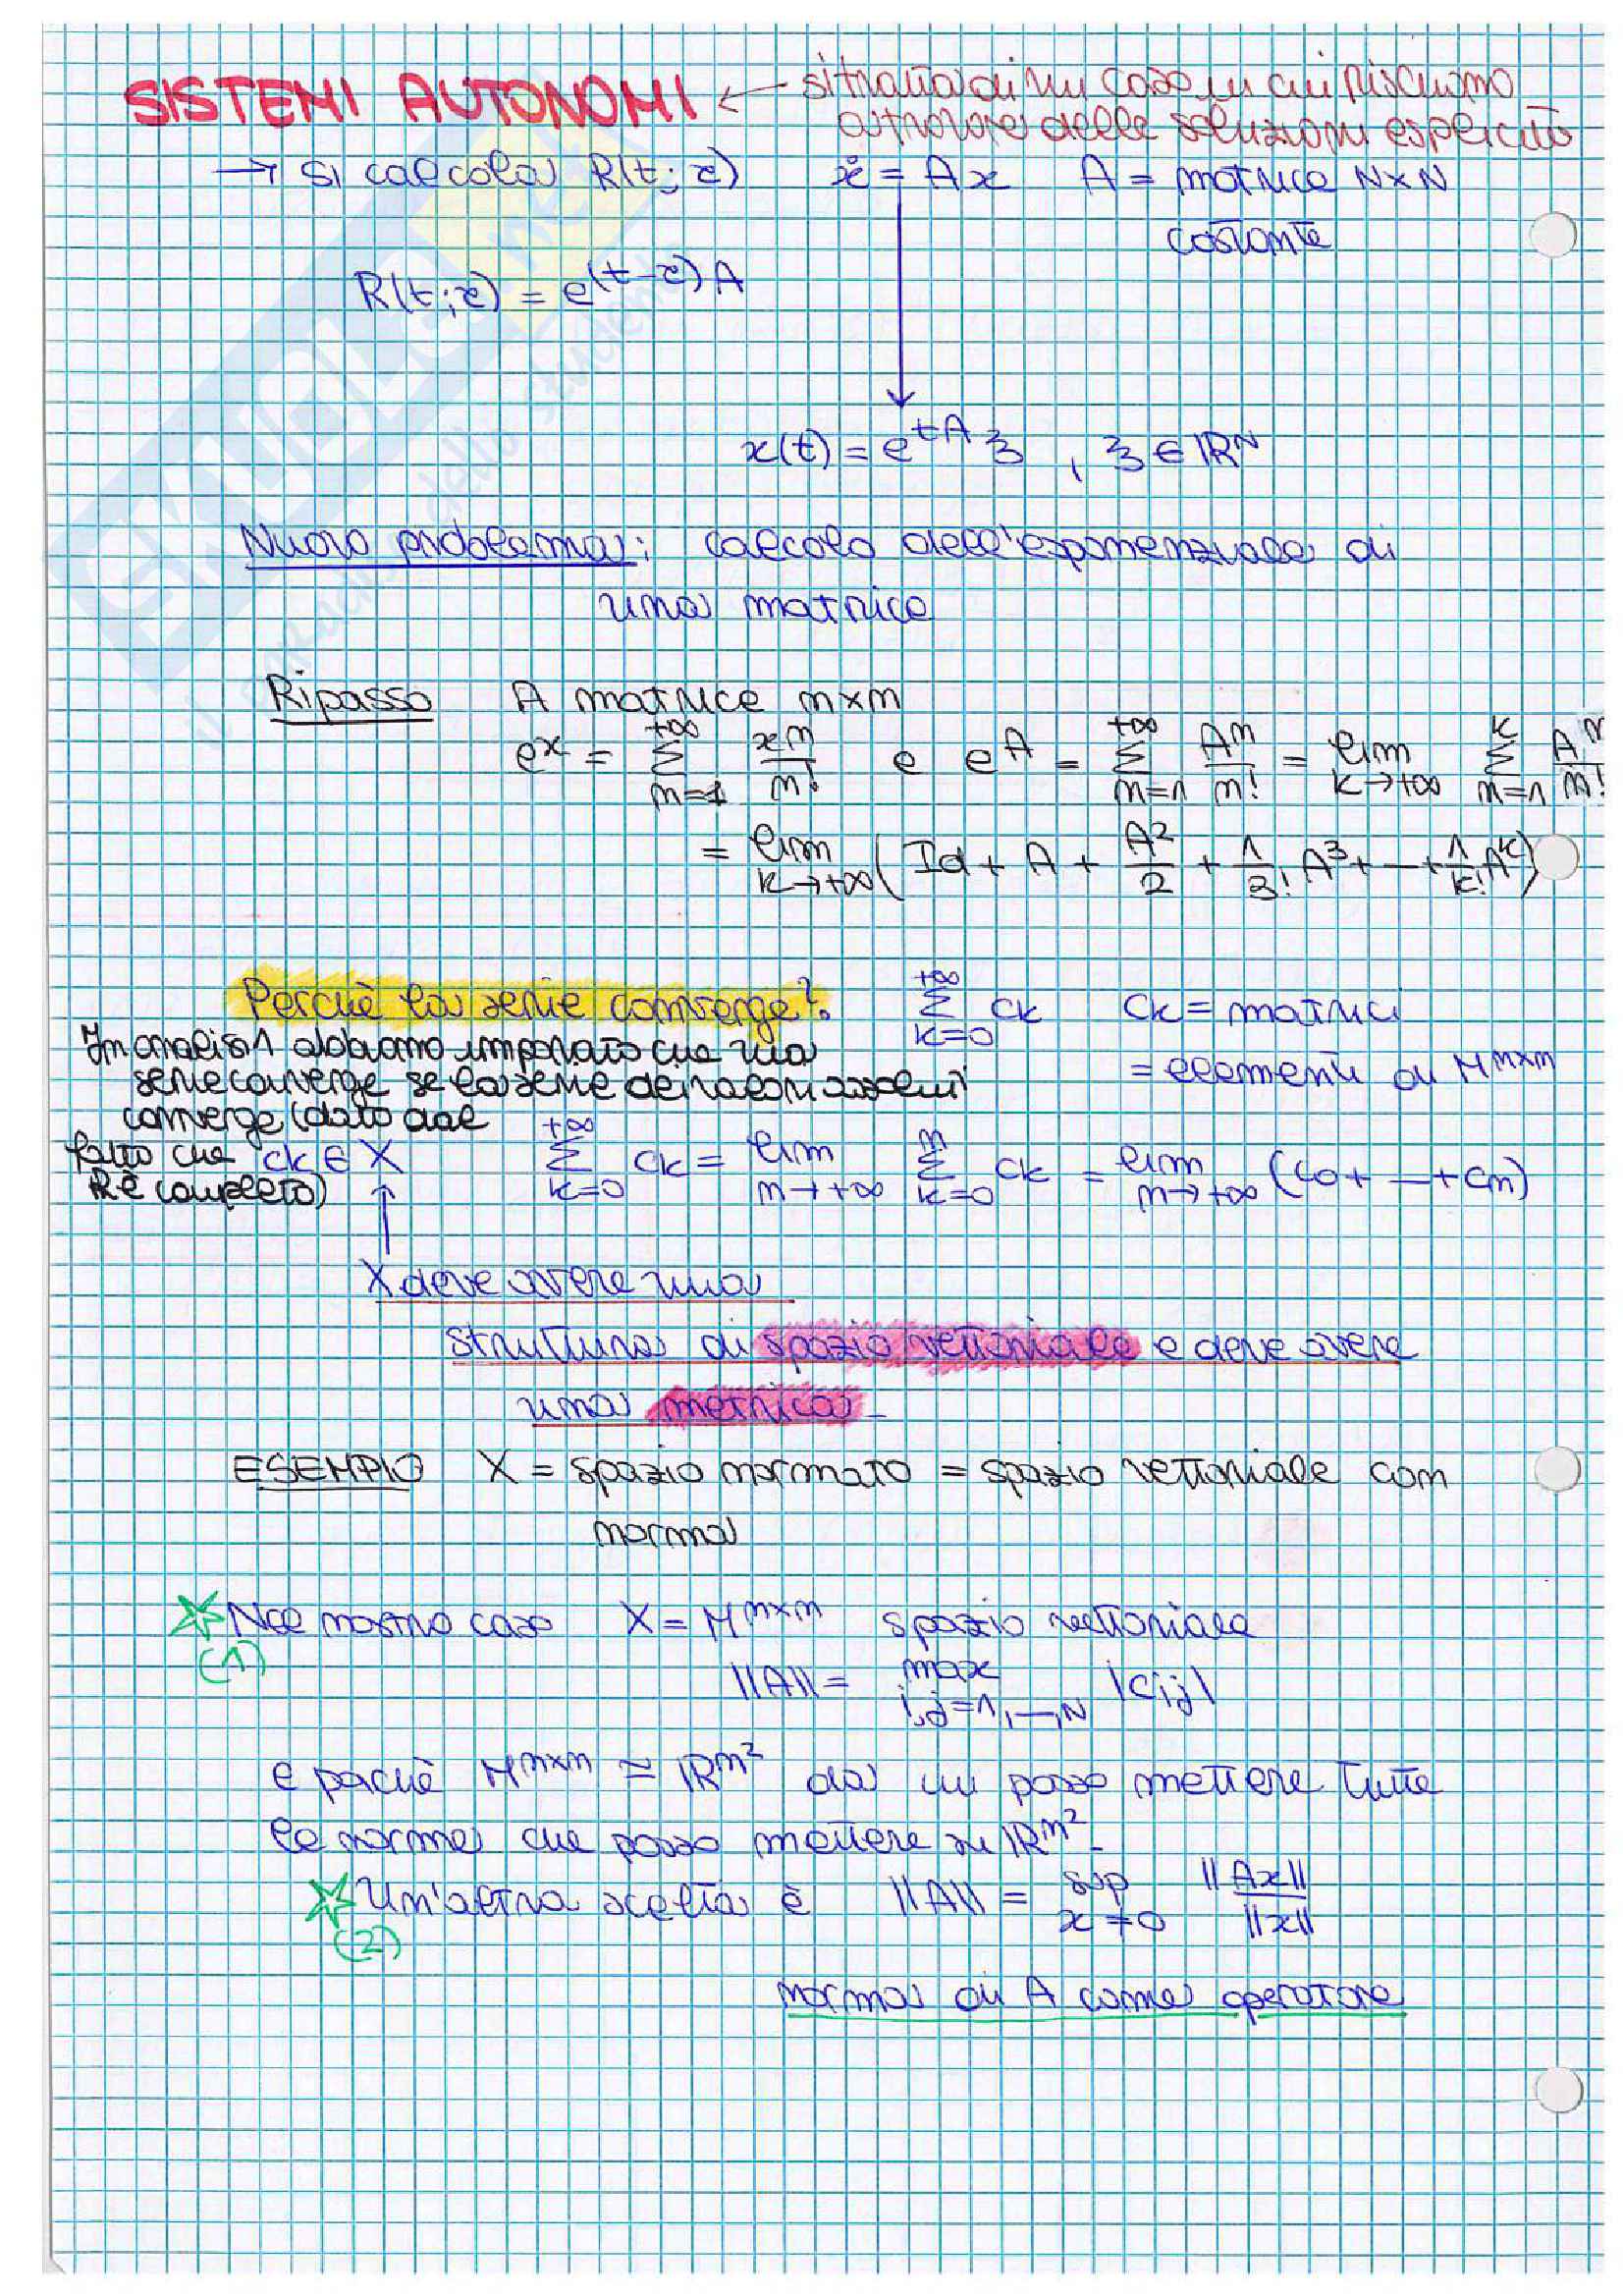 SISTEMI AUTONOMI ← si tratta di un caso in cui riusciamo
a trovare delle soluzioni esplicite
→ si calcola R(t;τ) ẋ = Ax A = matrice N×N
costante
R(t;τ) = e^(t-τ)A
x(t) = e^tA ξ , ξ ∈ ℝ^N
Nuovo problema: calcolo dell'esponenziale di
una matrice
Ripasso A matrice n×n
e^x = Σ_{n=1}^{+∞} x^n/n! e e^A = Σ_{n=1}^{+∞} A^n/n! = lim_{k→+∞} Σ_{n=1}^{k} A^n/n!
= lim_{k→+∞} (Id + A + A²/2 + 1/3! A³ + — + 1/k! A^k)
Perchè la serie converge? Σ_{k=0}^{+∞} Ck Ck = matrici
In analisi 1 abbiamo imparato che una
serie converge se la serie dei valori assoluti = elementi di M^{n×n}
converge (dato dal
fatto che Ck ∈ X Σ_{k=0}^{+∞} Ck = lim_{n→+∞} Σ_{k=0}^{n} Ck = lim_{n→+∞} (C0 + — + Cn)
ℝ è completo)
X deve avere una
struttura di spazio vettoriale e deve avere
una metrica.
ESEMPIO X = spazio normato = spazio vettoriale con
norma
Nel nostro caso X = M^{n×n} spazio vettoriale
(1) ||A|| = max_{i,j=1,—,N} |Cij|
e perchè M^{n×n} ≃ ℝ^{n²} da cui posso mettere tutte
le norme che posso mettere su ℝ^{n²}.
Un'altra scelta è ||A|| = sup_{x≠0} ||Ax||/||x||
(2)
norma di A come operatore